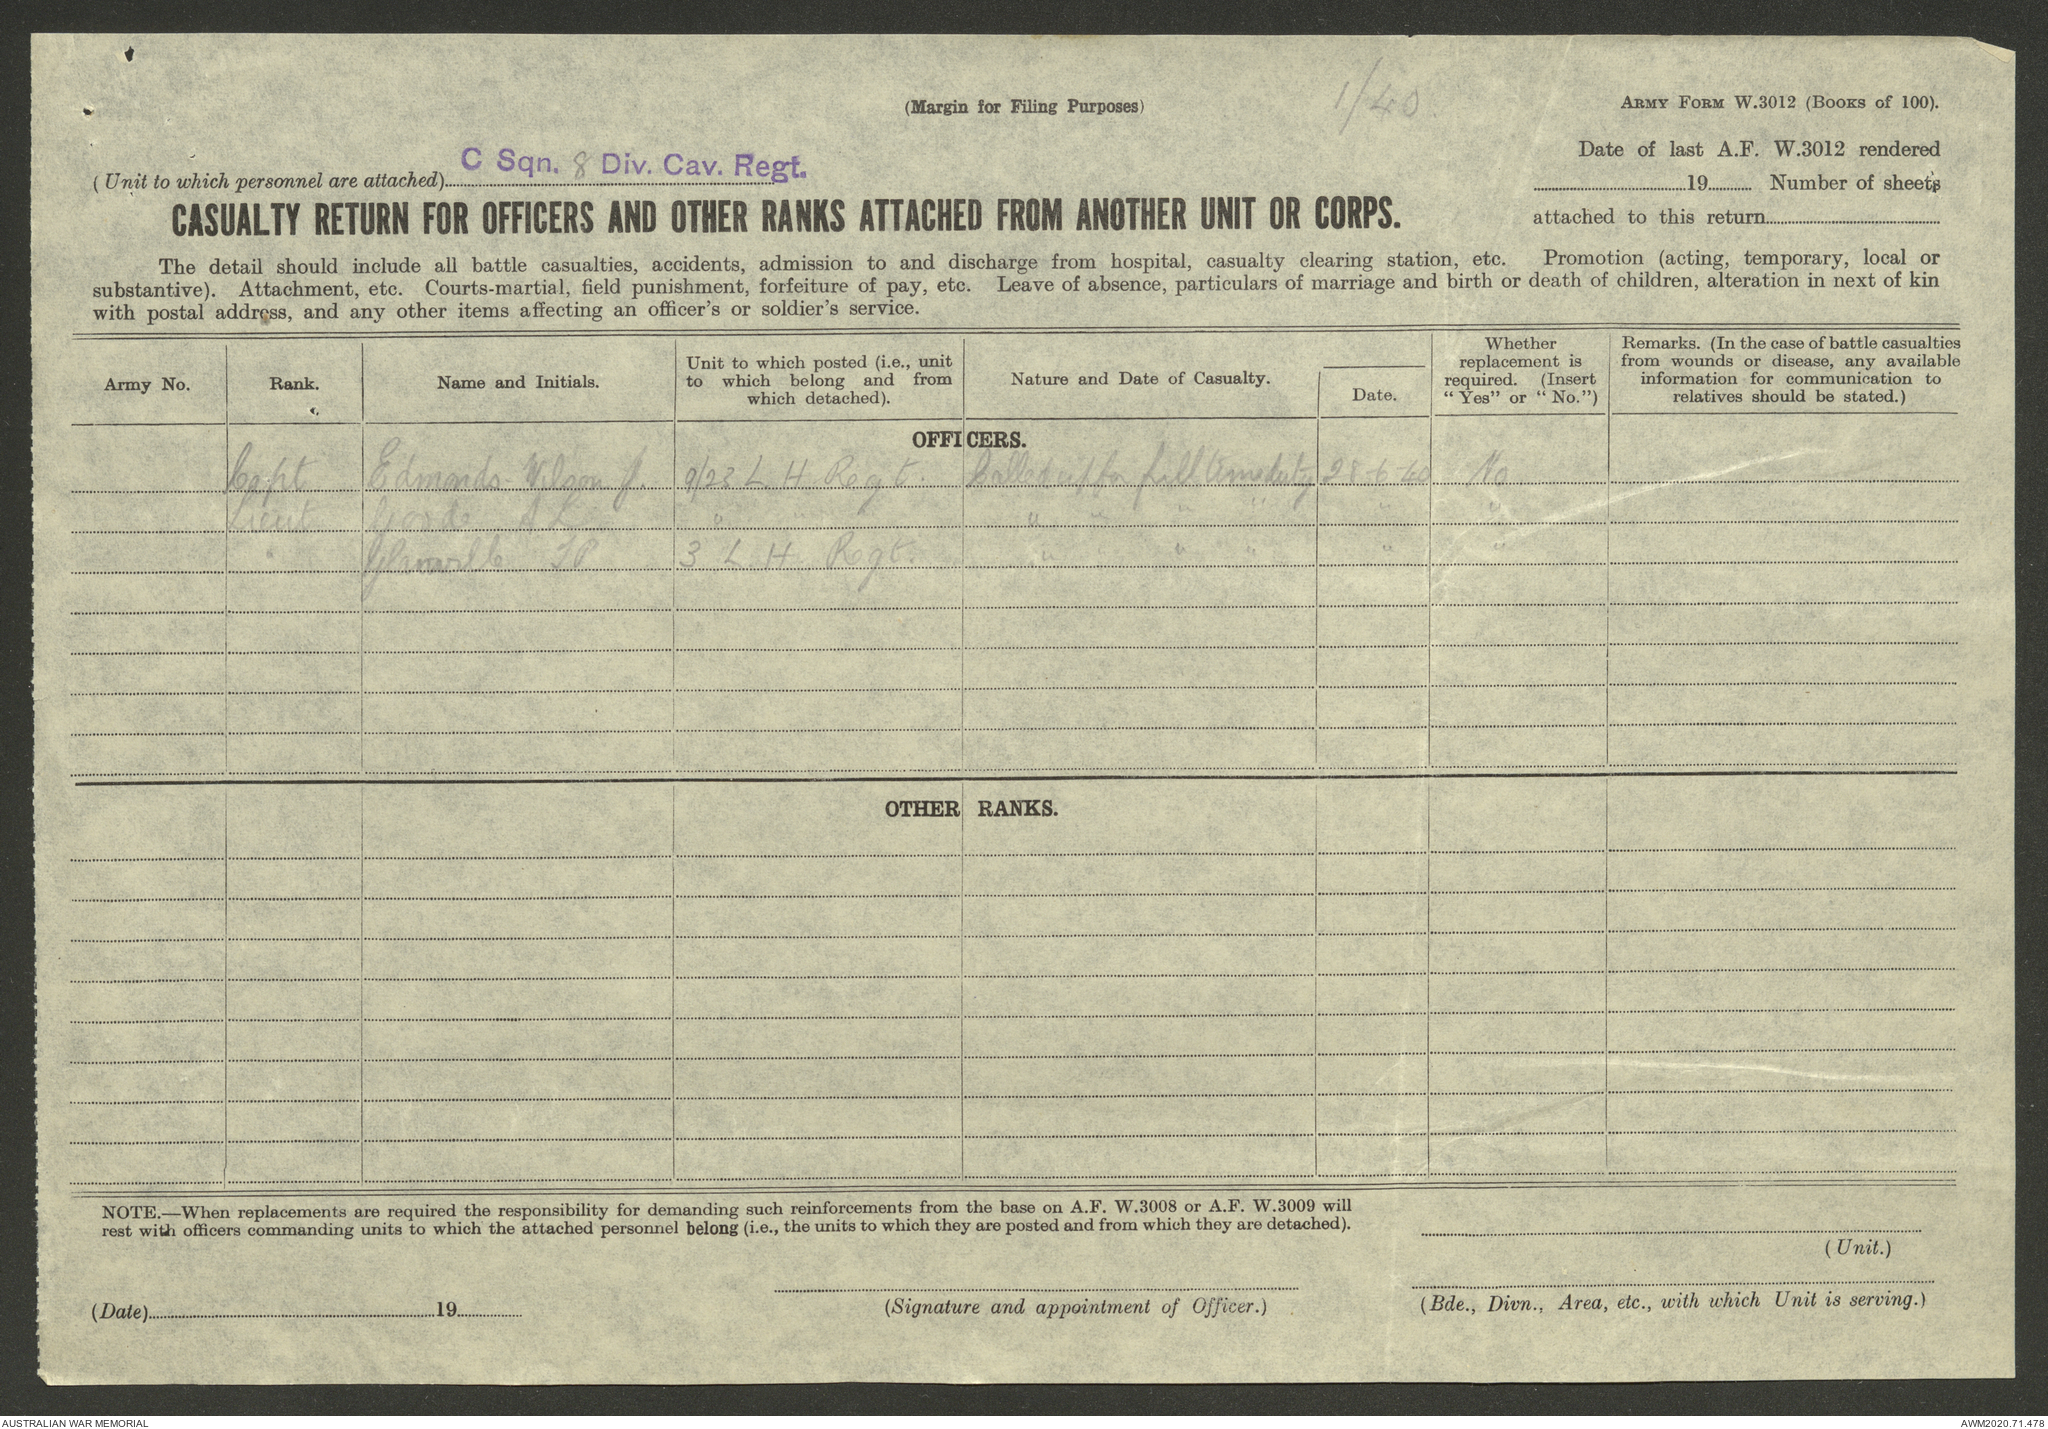 1/40
(Margin for Filing Purposes)
ARMY FORM W.3012 (BOOKS of 100).
Date of last A.F. W.3012 rendered
19 Number of sheets
attached to this return
C Sqn. 8 Div. Cav. Regt.
(Unit to which personnel are attached)
CASUALTY RETURN FOR OFFICERS AND OTHER RANKS ATTACHED FROM ANOTHER UNIT OR CORPS.
The detail should include all battle casualties, accidents, admission to and discharge from hospital, casualty clearing station, etc. Promotion (acting, temporary, local or
substantive). Attachment, etc. Courts-martial, field punishment, forfeiture of pay, etc. Leave of absence, particulars of marriage and birth or death of children, alteration in next of kin
with postal address, and any other items affecting an officer's or soldier's service.
Army No.
Rank.
Name and Initials.
Unit to which posted (i.e., unit
to which belong and from
which detached).
Nature and Date of Casualty.
Date.
Whether
replacement is
required. (Insert
“ Yes” or “ No.”)
Remarks. (In the case of battle casualties
from wounds or disease, any available
information for communication to
relatives should be stated.)
OFFICERS.
Capt Edmonds-Wilson J. 9/23 L. H. Regt. Called up for full time duty 28-6-40 No
Lieut " " " " " " " "
" Glanville 3 L. H. Regt. " " " " " "
OTHER RANKS.
NOTE.—When replacements are required the responsibility for demanding such reinforcements from the base on A.F. W.3008 or A.F. W.3009 will
rest with officers commanding units to which the attached personnel belong (i.e., the units to which they are posted and from which they are detached).
(Unit.)
(Date) 19
(Signature and appointment of Officer.)
(Bde., Divn., Area, etc., with which Unit is serving.)
AUSTRALIAN WAR MEMORIAL
AWM2020.71.478